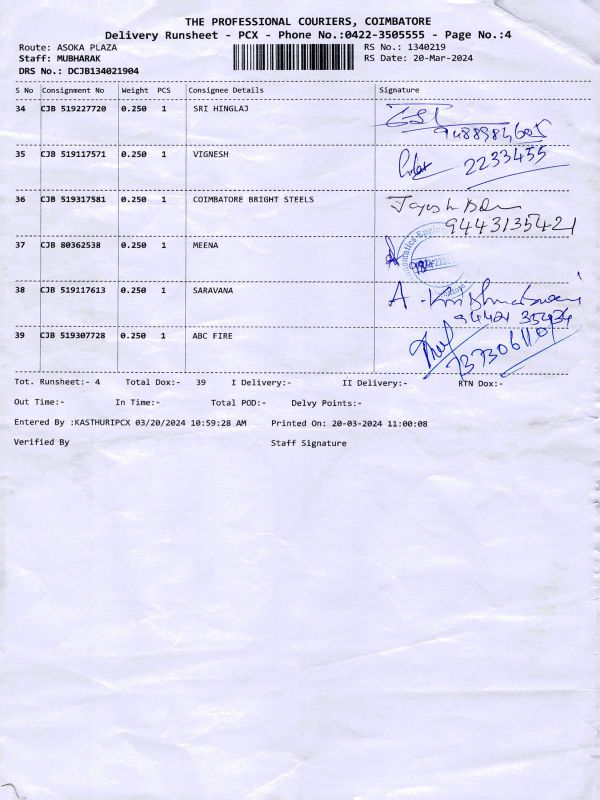 THE PROFESSIONAL COURIERS, COIMBATORE
Delivery Runsheet - PCX - Phone No.:0422-3505555 - Page No.:4
Route: ASOKA PLAZA RS No.: 1340219
Staff: MUBHARAK RS Date: 20-Mar-2024
DRS No.: DCJB134021904
S No Consignment No Weight PCS Consignee Details Signature
34 CJB 519227720 0.250 1 SRI HINGLAJ
35 CJB 519117571 0.250 1 VIGNESH 2233455
36 COIMBATORE CJB 519317581 0.250 1 COIMBATORE BRIGHT STEELS
9443135421
37 CJB 80362538 0.250 1 MEENA
38 CJB 519117613 0.250 1 SARAVANA
39 CJB 519307728 0.250 1 ABC FIRE
Tot. Runsheet:- 4 Total Dox:- 39 I Delivery:- II Delivery:- RTN Dox:-
Out Time:- In Time:- Total POD:- Delvy Points:-
Entered By :KASTHURIPCX 03/20/2024 10:59:28 AM Printed On: 20-03-2024 11:00:08
Verified By Staff Signature